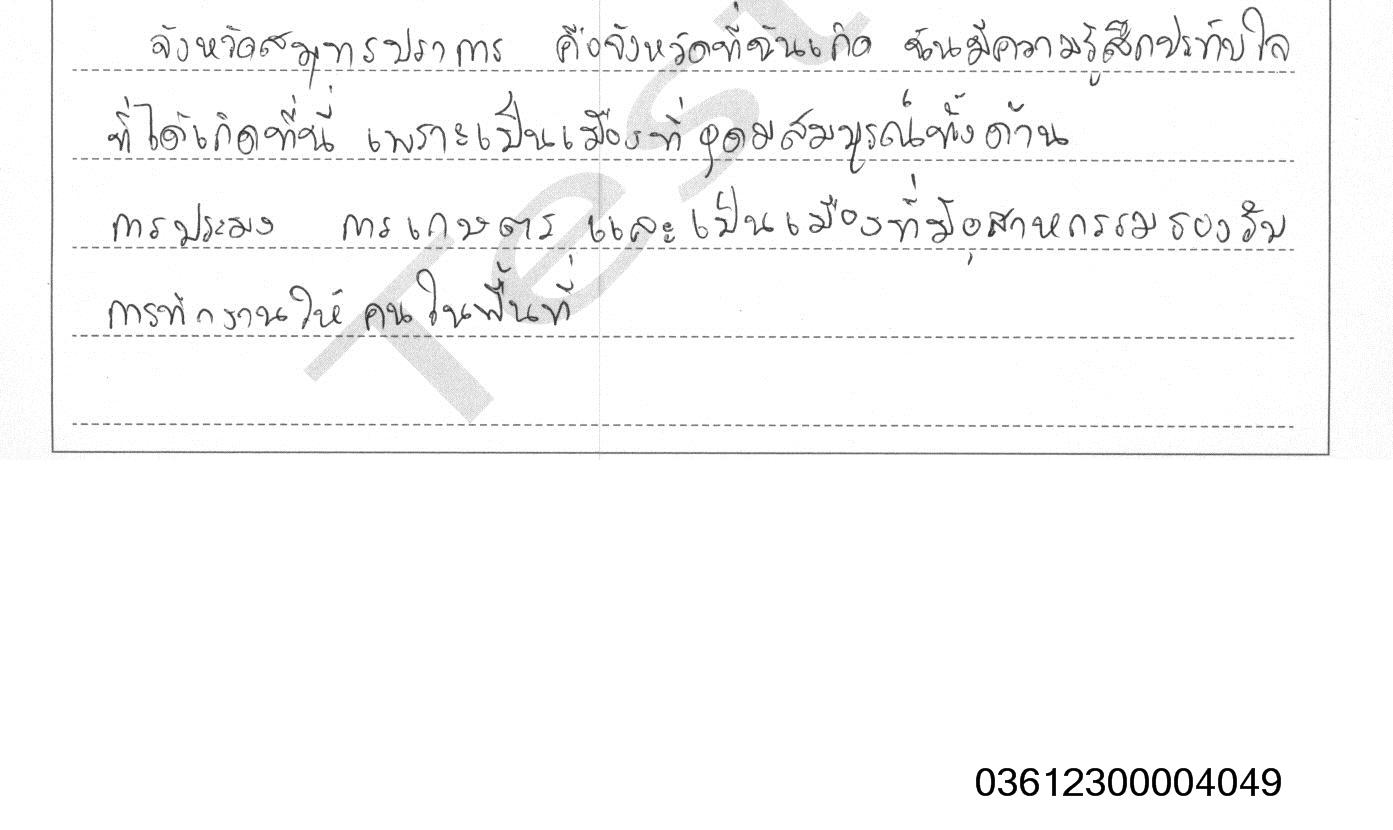 จังหวัดสมุทรปราการ คือจังหวัดที่ฉันเกิด ฉันมีความรู้สึกประทับใจ
ที่ได้เกิดที่นี่ เพราะเป็นเมืองที่อุดมสมบูรณ์ทั้งด้าน
การประมง การเกษตร และเป็นเมืองที่มีอุสาหกรรมรองรับ
การทำงานให้คนในพื้นที่
Test
03612300004049